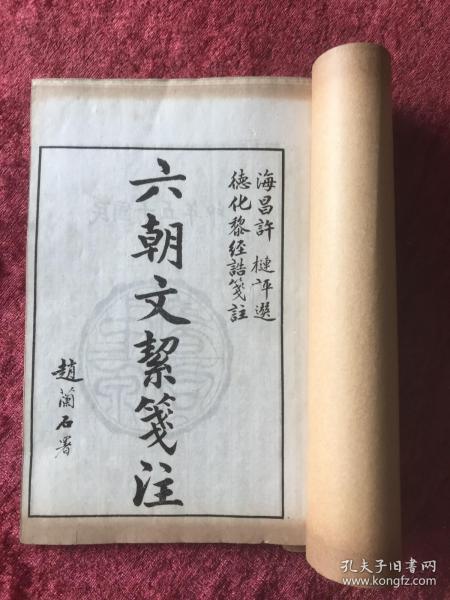 海昌許槤評選
德化黎经誥箋註
六朝文絜箋注
趙蘭石署
孔夫子旧书网
www.kongfz.com